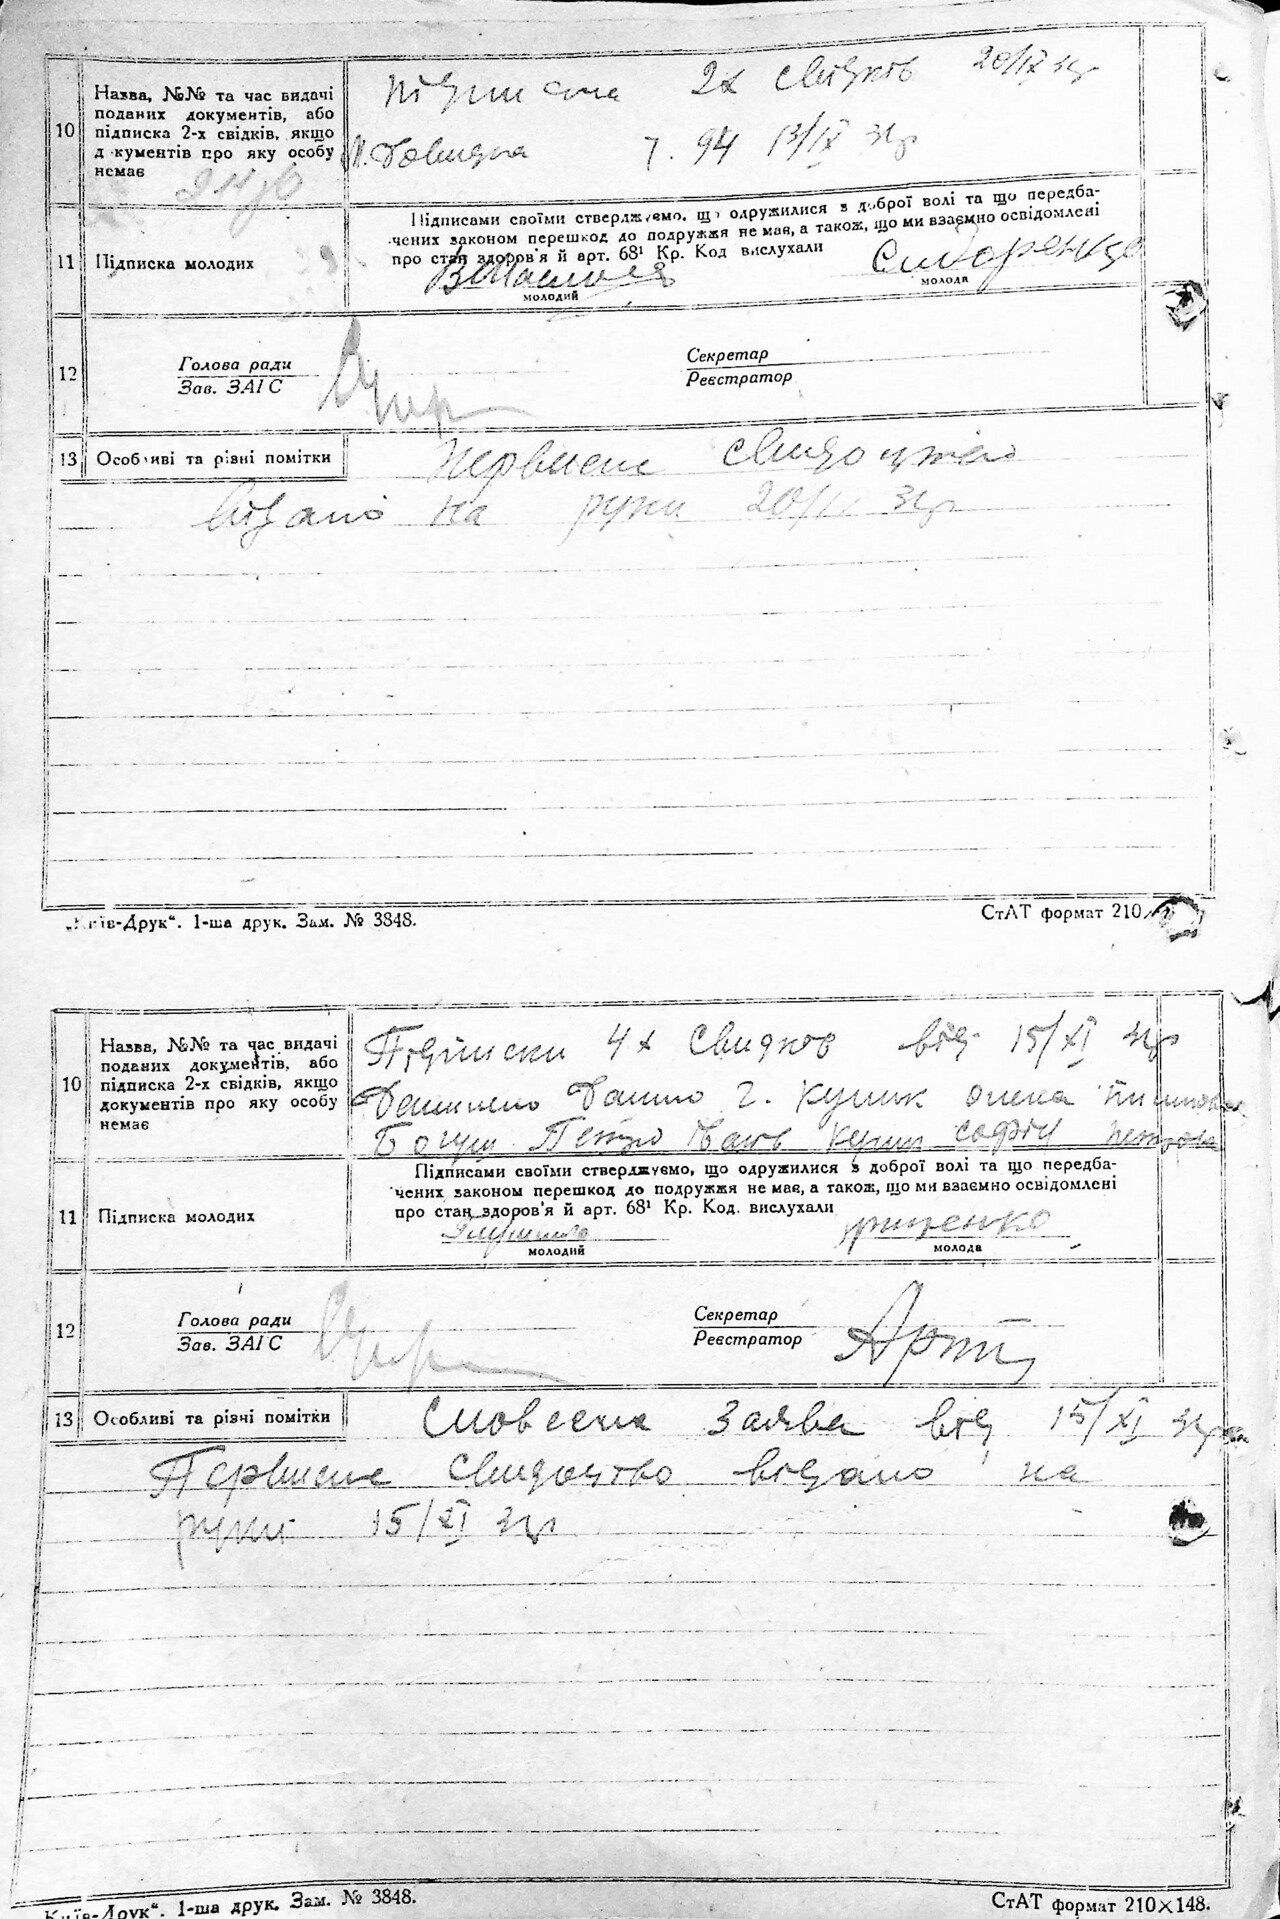 10
Назва, №№ та час видачі
поданих документів, або
підписка 2-х свідків, якщо
д кументів про яку особу
немає
2х свидків 20/IX 31р
М. Довидка 7. 94 13/IX 31р
11
Підписка молодих
Підписами своїми стверджуємо, що одружилися з доброї волі та що передба-
чених законом перешкод до подружжя не має, а також, що ми взаємно освідомлені
про стан здоров'я й арт. 68¹ Кр. Код вислухали
Сидоренко
молодий
молода
12
Голова ради
Зав. ЗАГС
Секретар
Реєстратор
13
Особливі та різні помітки
Первисне свидоцтво
видано на руки 20/IX 31р
„Київ-Друк“. 1-ша друк. Зам. № 3848.
СтАТ формат 210
10
Назва, №№ та час видачі
поданих документів, або
підписка 2-х свідків, якщо
документів про яку особу
немає
Підписки 4х свидков від 15/XI 31р
Данило Г. Кулик
Богун Петро Кулик Софія
11
Підписка молодих
Підписами своїми стверджуємо, що одружилися з доброї волі та що передба-
чених законом перешкод до подружжя не має, а також, що ми взаємно освідомлені
про стан здоров'я й арт. 68¹ Кр. Код. вислухали
Гриценко
молодий
молода
12
Голова ради
Зав. ЗАГС
Секретар
Реєстратор
13
Особливі та різні помітки
Словесна заява від 15/XI 31р
Первисне свидоцтво видано на
руки 15/XI 31р
Київ-Друк“. 1-ша друк. Зам. № 3848.
СтАТ формат 210×148.